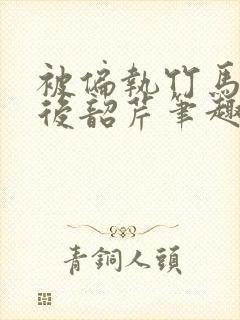 被偏執竹馬
後韶芹筆趣
青銅人頭